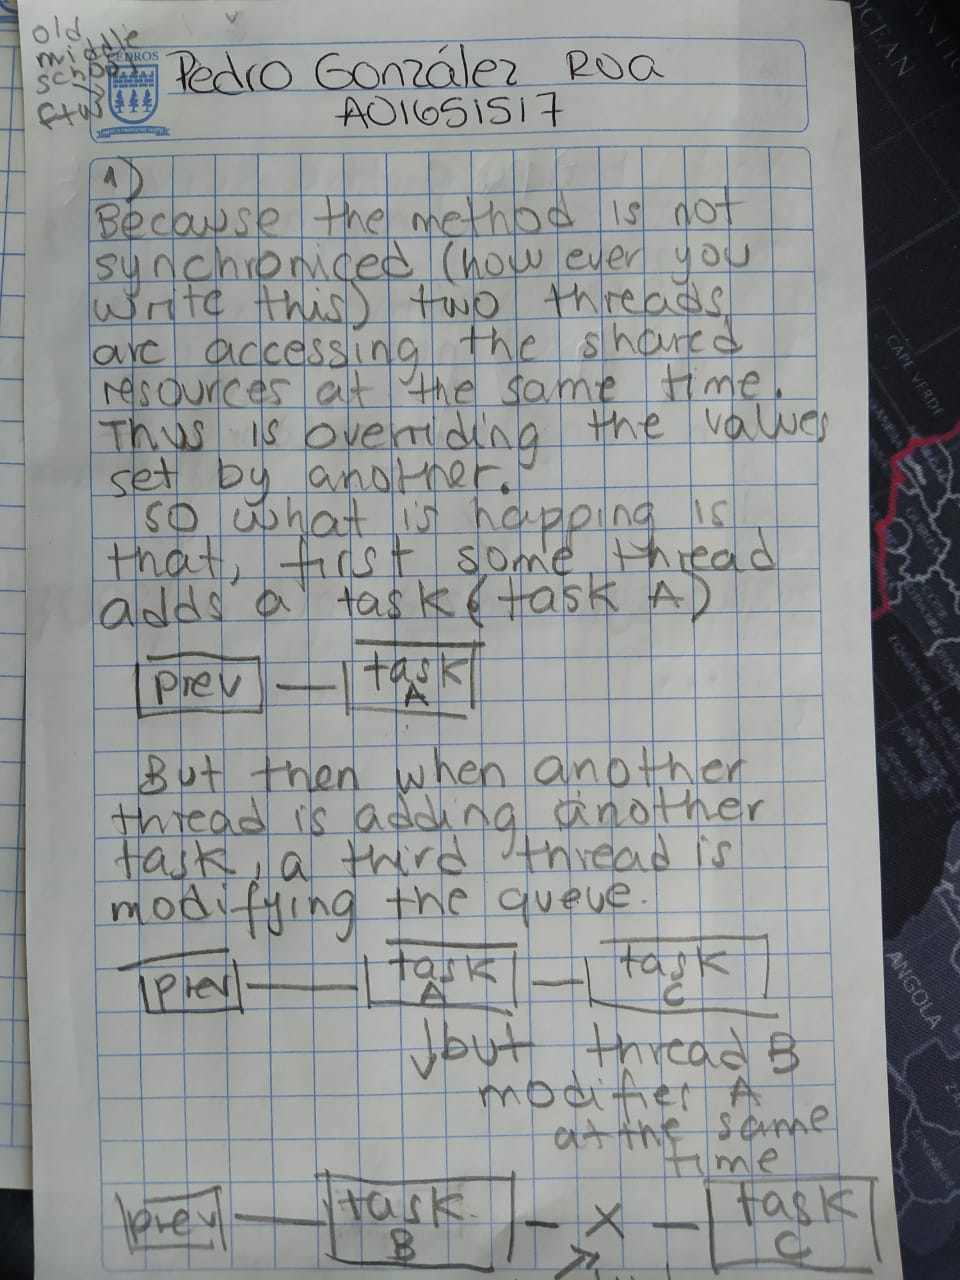 old
middle
school
ftw
PEDROS
Pedro González Roa
A01651517
1)
Because the method is not
synchroniced (how ever you
write this) two threads
are accessing the shared
resources at the same time.
Thus is overriding the values
set by another.
so what is happing is
that, first some thread
adds a task (task A)
prev — task A
But then when another
thread is adding another
task, a third thread is
modifying the queue.
prev — task A — task C
↓ but thread B
modifies A
at the same
time
prev — task B - X - task C
OCEAN
CAPE VERDE
ANGOLA